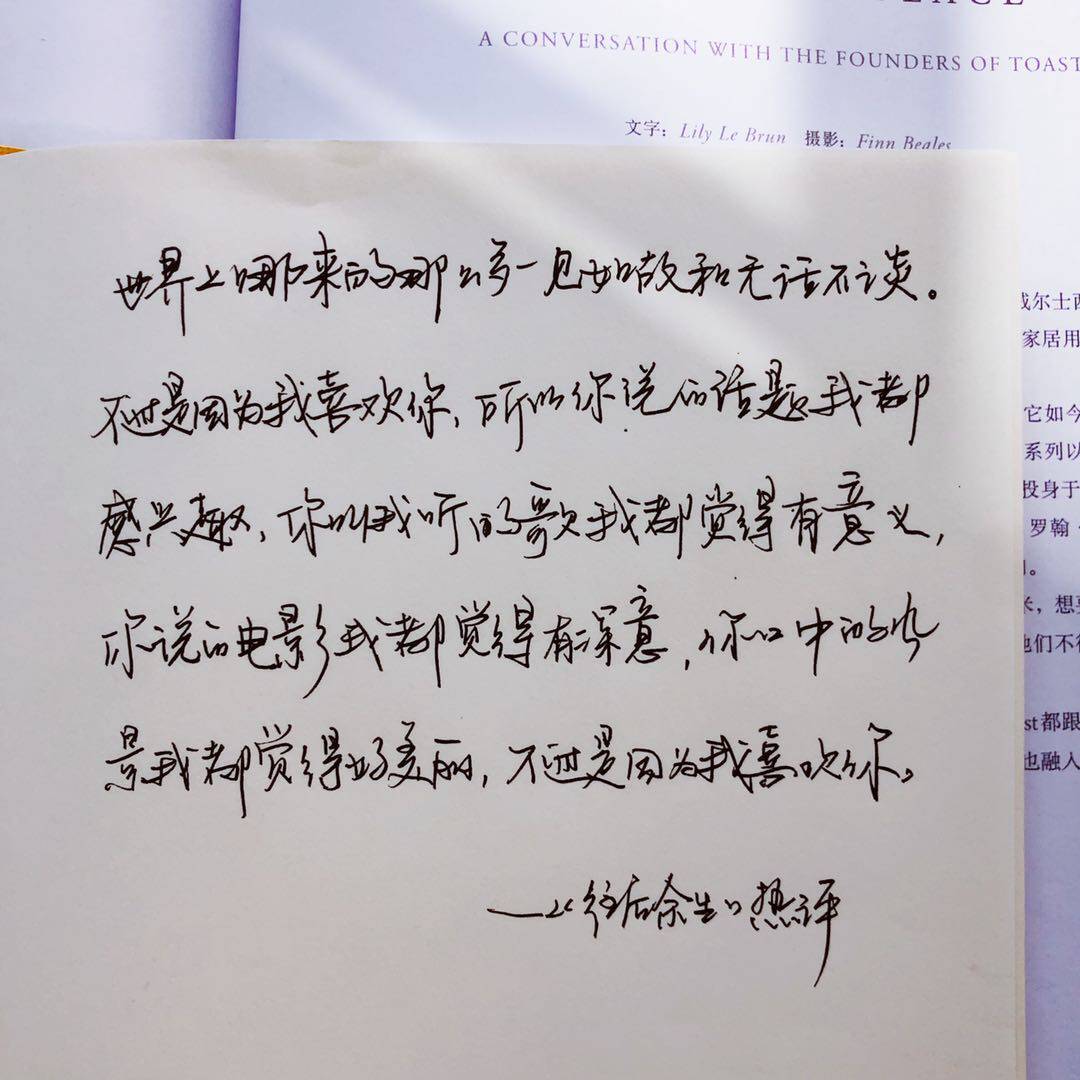 A CONVERSATION WITH THE FOUNDERS OF TOAST
文字：Lily Le Brun 摄影：Finn Beales
世界上哪来的那么多一见如故和无话不谈。
不过是因为我喜欢你，所以你说的话题我都
感兴趣，你叫我听的歌我都觉得有意义，
你说的电影我都觉得有深意，你口中的风
景我都觉得好美丽，不过是因为我喜欢你。
——《往后余生》热评
尔士
家居用
它如今
系列以
投身于
罗翰
米，想
他们不
st都跟
也融入